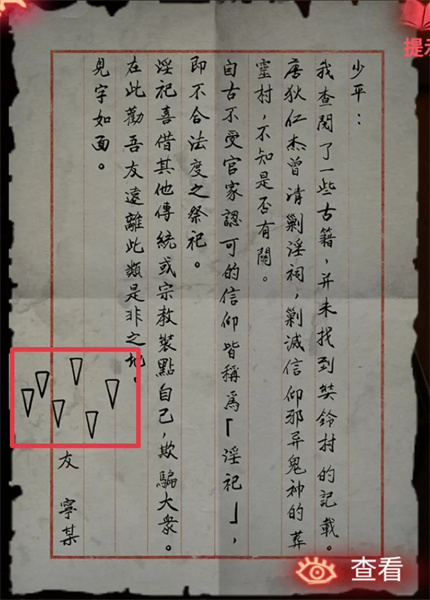 少平：
我查閱了一些古籍，并未找到奘鈴村的記載。
唐狄仁杰曾清剿淫祠，剿滅信仰邪异鬼神的葬
靈村，不知是否有關。
自古不受官家認可的信仰皆稱爲「淫祀」，
即不合法度之祭祀。
淫祀喜借其他傳統或宗教裝點自己，欺騙大衆。
在此勸吾友遠離此類是非之地。
見字如面。
友 寧某
提示
查看